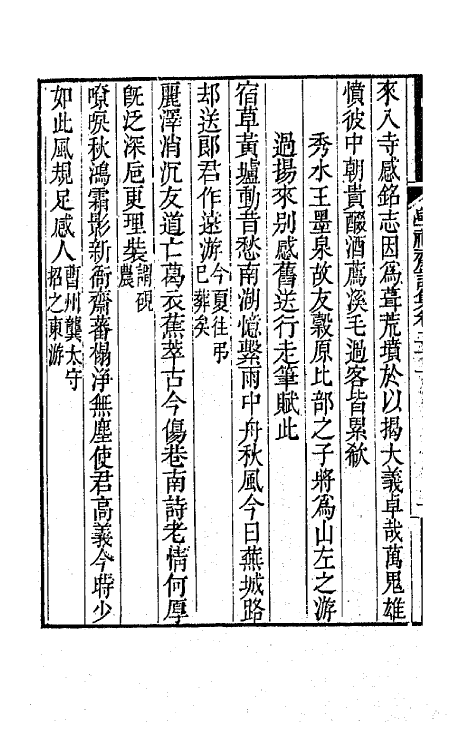 來入寺感銘志因爲葺荒墳於以揭大義卓哉萬鬼雄
憤彼中朝貴醊酒薦溪毛過客皆累欷
秀水王墨泉故友穀原比部之子將爲山左之游
過揚來别感舊送行走筆賦此
宿草黃壚動昔愁南湖憶繫雨中舟秋風今日蕪城路
却送郎君作遠游今夏往弔已葬矣
麗澤消沉友道亡葛衣蕉萃古今傷巷南詩老情何厚
旣泛深巵更理裝謂硯農
嘹唳秋鴻霜影新衙齋蕃榻淨無塵使君高義今時少
如此風規足感人曹州龔太守招之東游